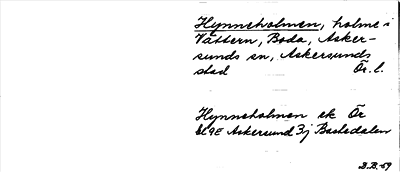 Hynneholmen, holme i
Vättern, Boda, Asker-
sunds sn, Askersunds
stad Ör. l.
Hynneholmen ek Ör
8E9E Askersund 3j Bastedalen
B.B. -59